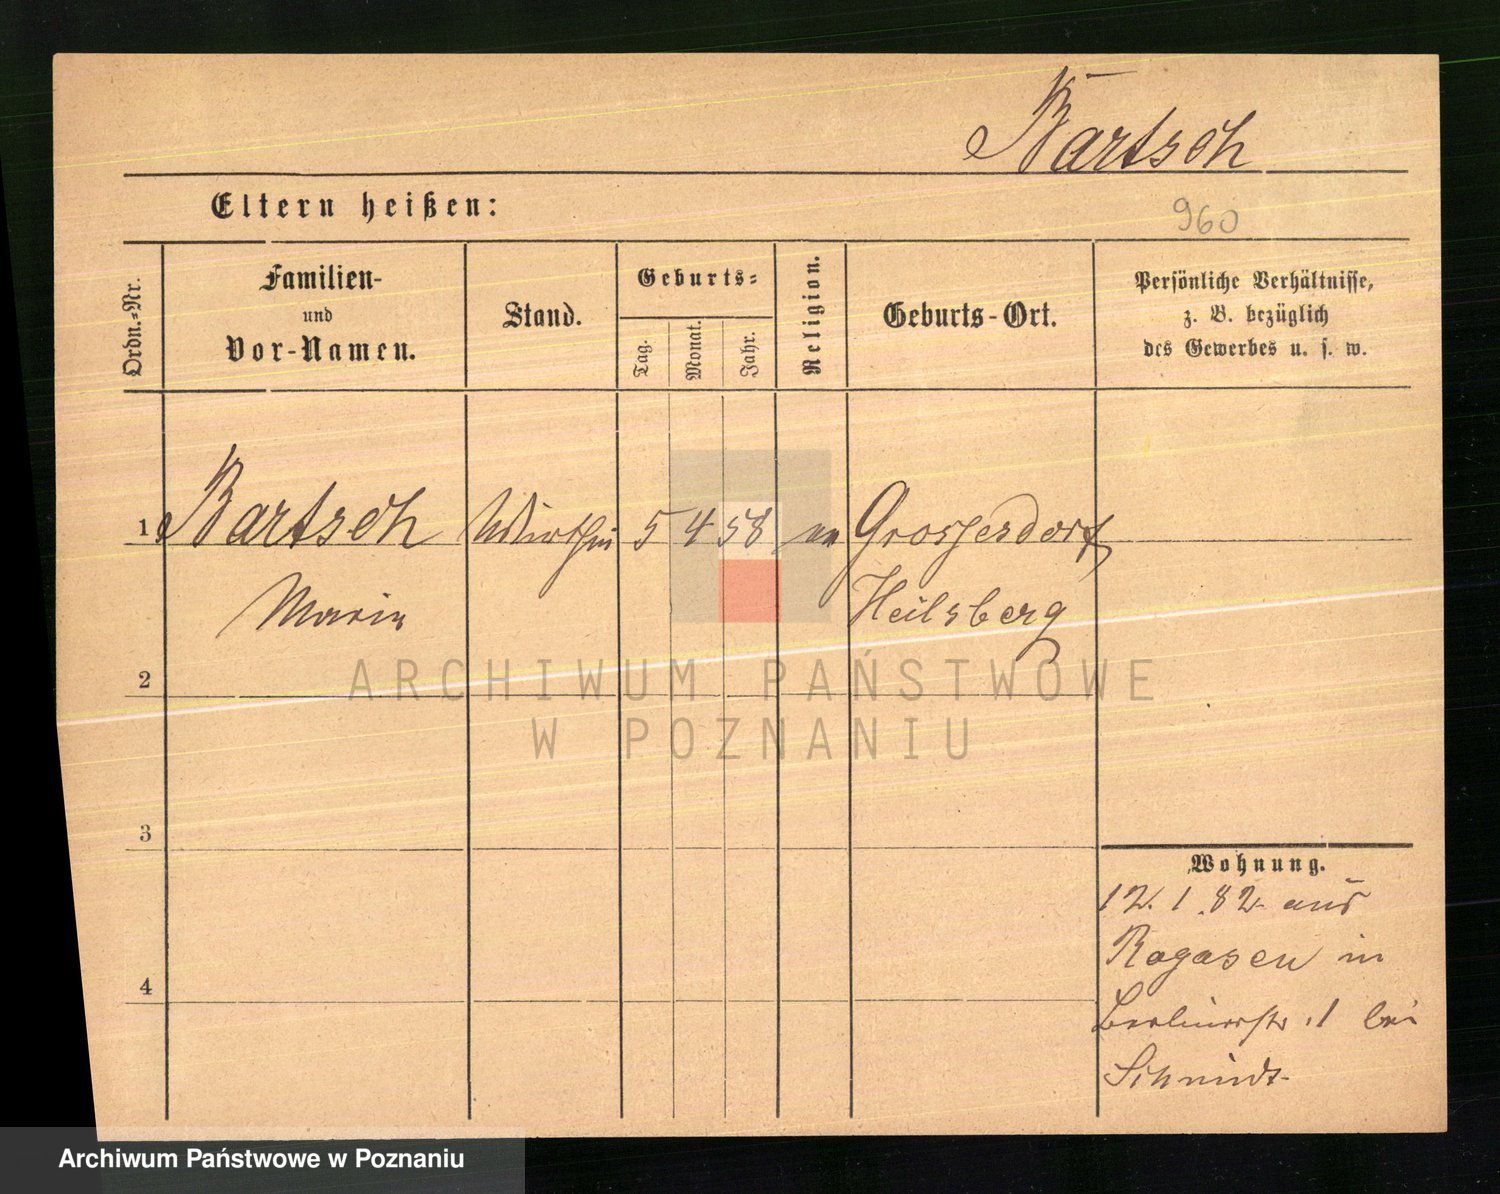 Bartsch
Eltern heißen:
960
Ordn.-Nr.
Familien-
und
Vor-Namen.
Stand.
Geburts-
Tag.
Monat.
Jahr.
Religion.
Geburts-Ort.
Persönliche Verhältnisse,
z. B. bezüglich
des Gewerbes u. s. w.
1 Bartsch Wirthin 5 4 58 Grossendorf
Marie Heilsberg
ARCHIWUM PAŃSTWOWE
W POZNANIU
2
3
Wohnung.
12. 1. 82 aus
Rogasen in
4
Berlinerstr. 1 bei
Schmidt
Archiwum Państwowe w Poznaniu